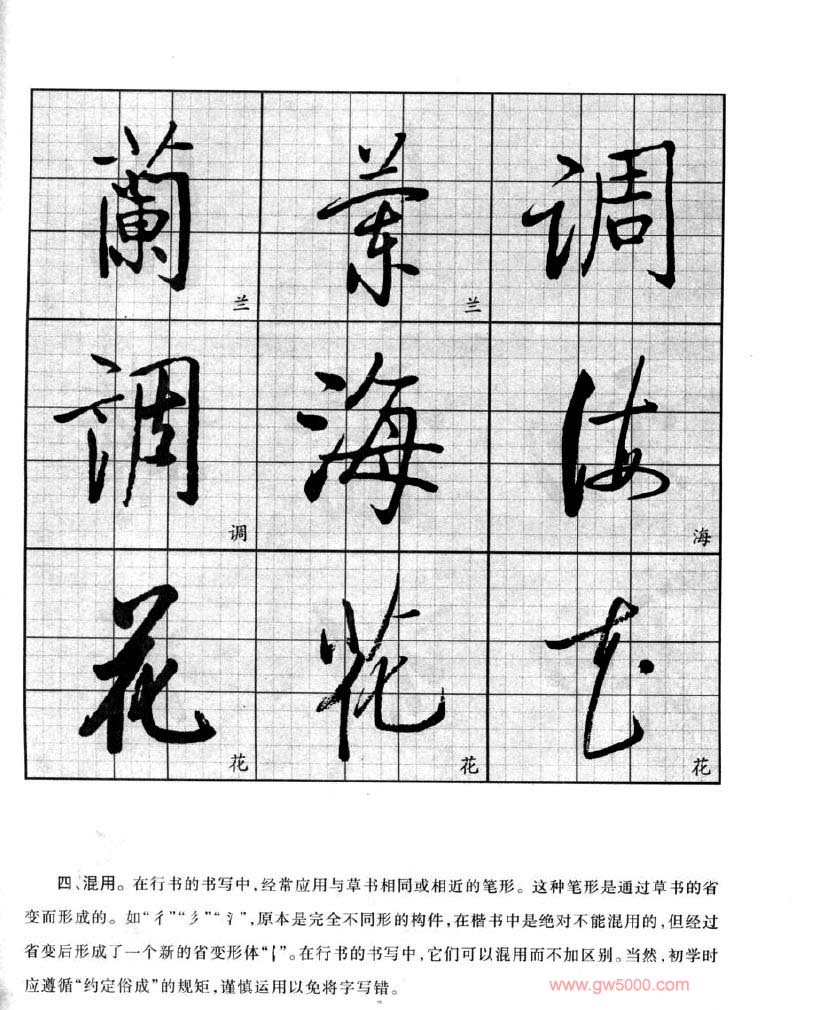 蘭 蘭 调
兰 兰
調 海 海
调 海
花 花 花
花 花 花
四、混用。在行书的书写中,经常应用与草书相同或相近的笔形。这种笔形是通过草书的省
变而形成的。如“彳”“彡”“氵”,原本是完全不同形的构件,在楷书中是绝对不能混用的,但经过
省变后形成了一个新的省变形体“ ”。在行书的书写中,它们可以混用而不加区别。当然,初学时
应遵循“约定俗成”的规矩,谨慎运用以免将字写错。
www.gw5000.com